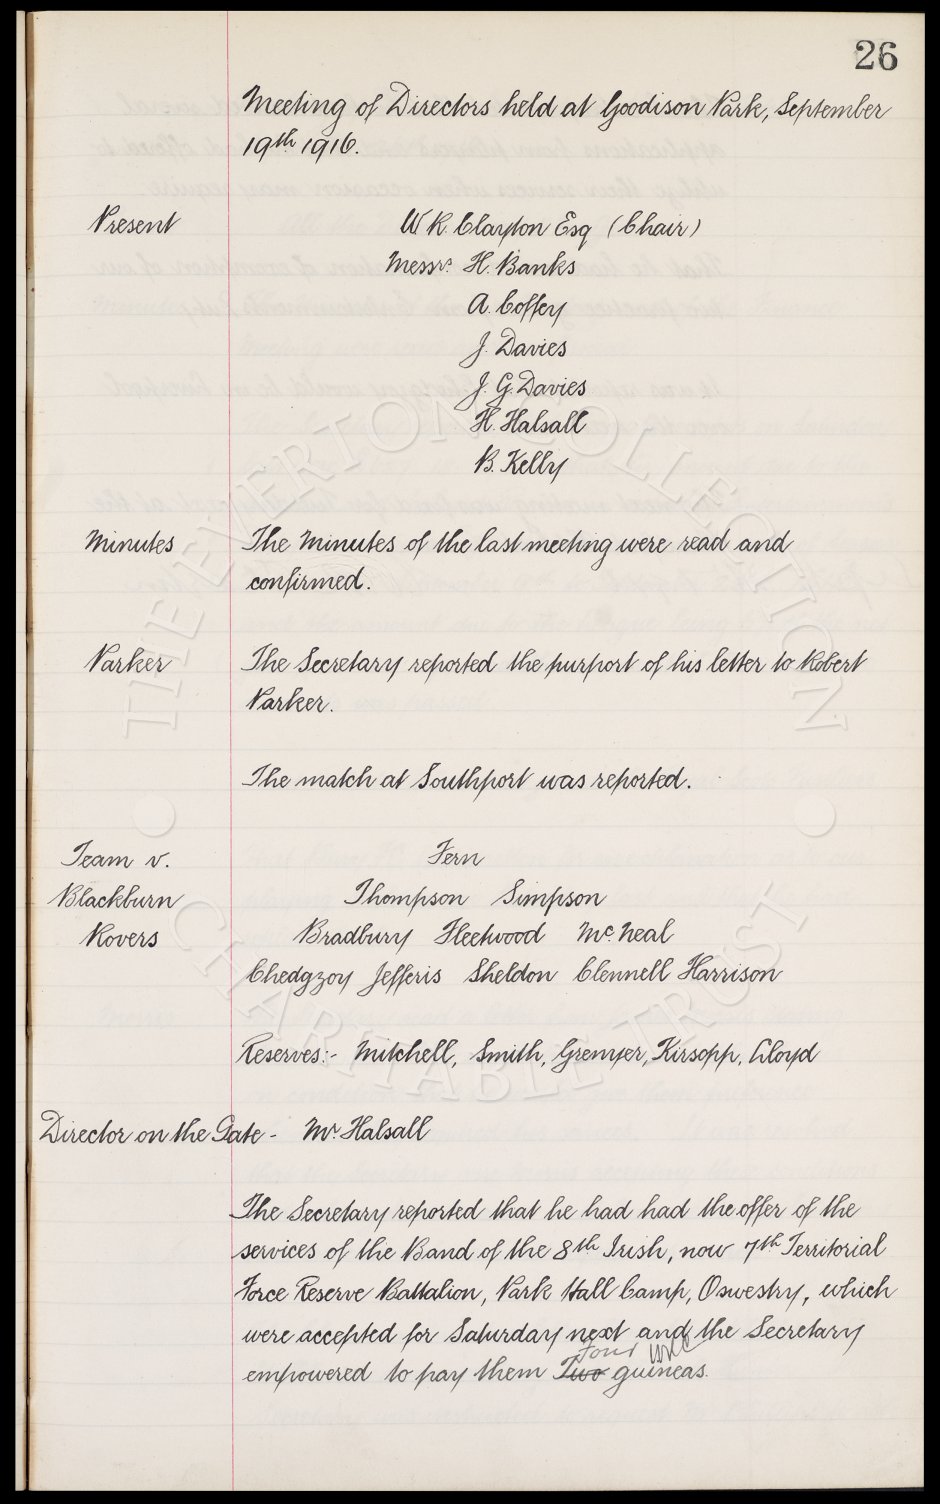 26
Meeting of Directors held at Goodison Park, September
19th 1916.
Present
W. R. Clayton Esq (Chair)
Messrs. H. Banks
A. Coffey
J. Davies
J. G. Davies
H. Halsall
B. Kelly
Minutes
The Minutes of the last meeting were read and
confirmed.
Parker
The Secretary reported the purport of his letter to Robert
Parker.
The match at Southport was reported.
Team v. Fern
Blackburn Thompson Simpson
Rovers Bradbury Fleetwood Mc.Neal
Chedgzoy Jefferis Sheldon Clennell Harrison
Reserves:- Mitchell, Smith, Grenyer, Kirsopp, Lloyd
Director on the Gate - Mr. Halsall
The Secretary reported that he had had the offer of the
services of the Band of the 8th Irish, now 7th Territorial
Force Reserve Battalion, Park Hall Camp, Oswestry, which
were accepted for Saturday next and the Secretary
Four WRC
empowered to pay them Two guineas.
THE EVERTON COLLECTION
CHARITABLE TRUST